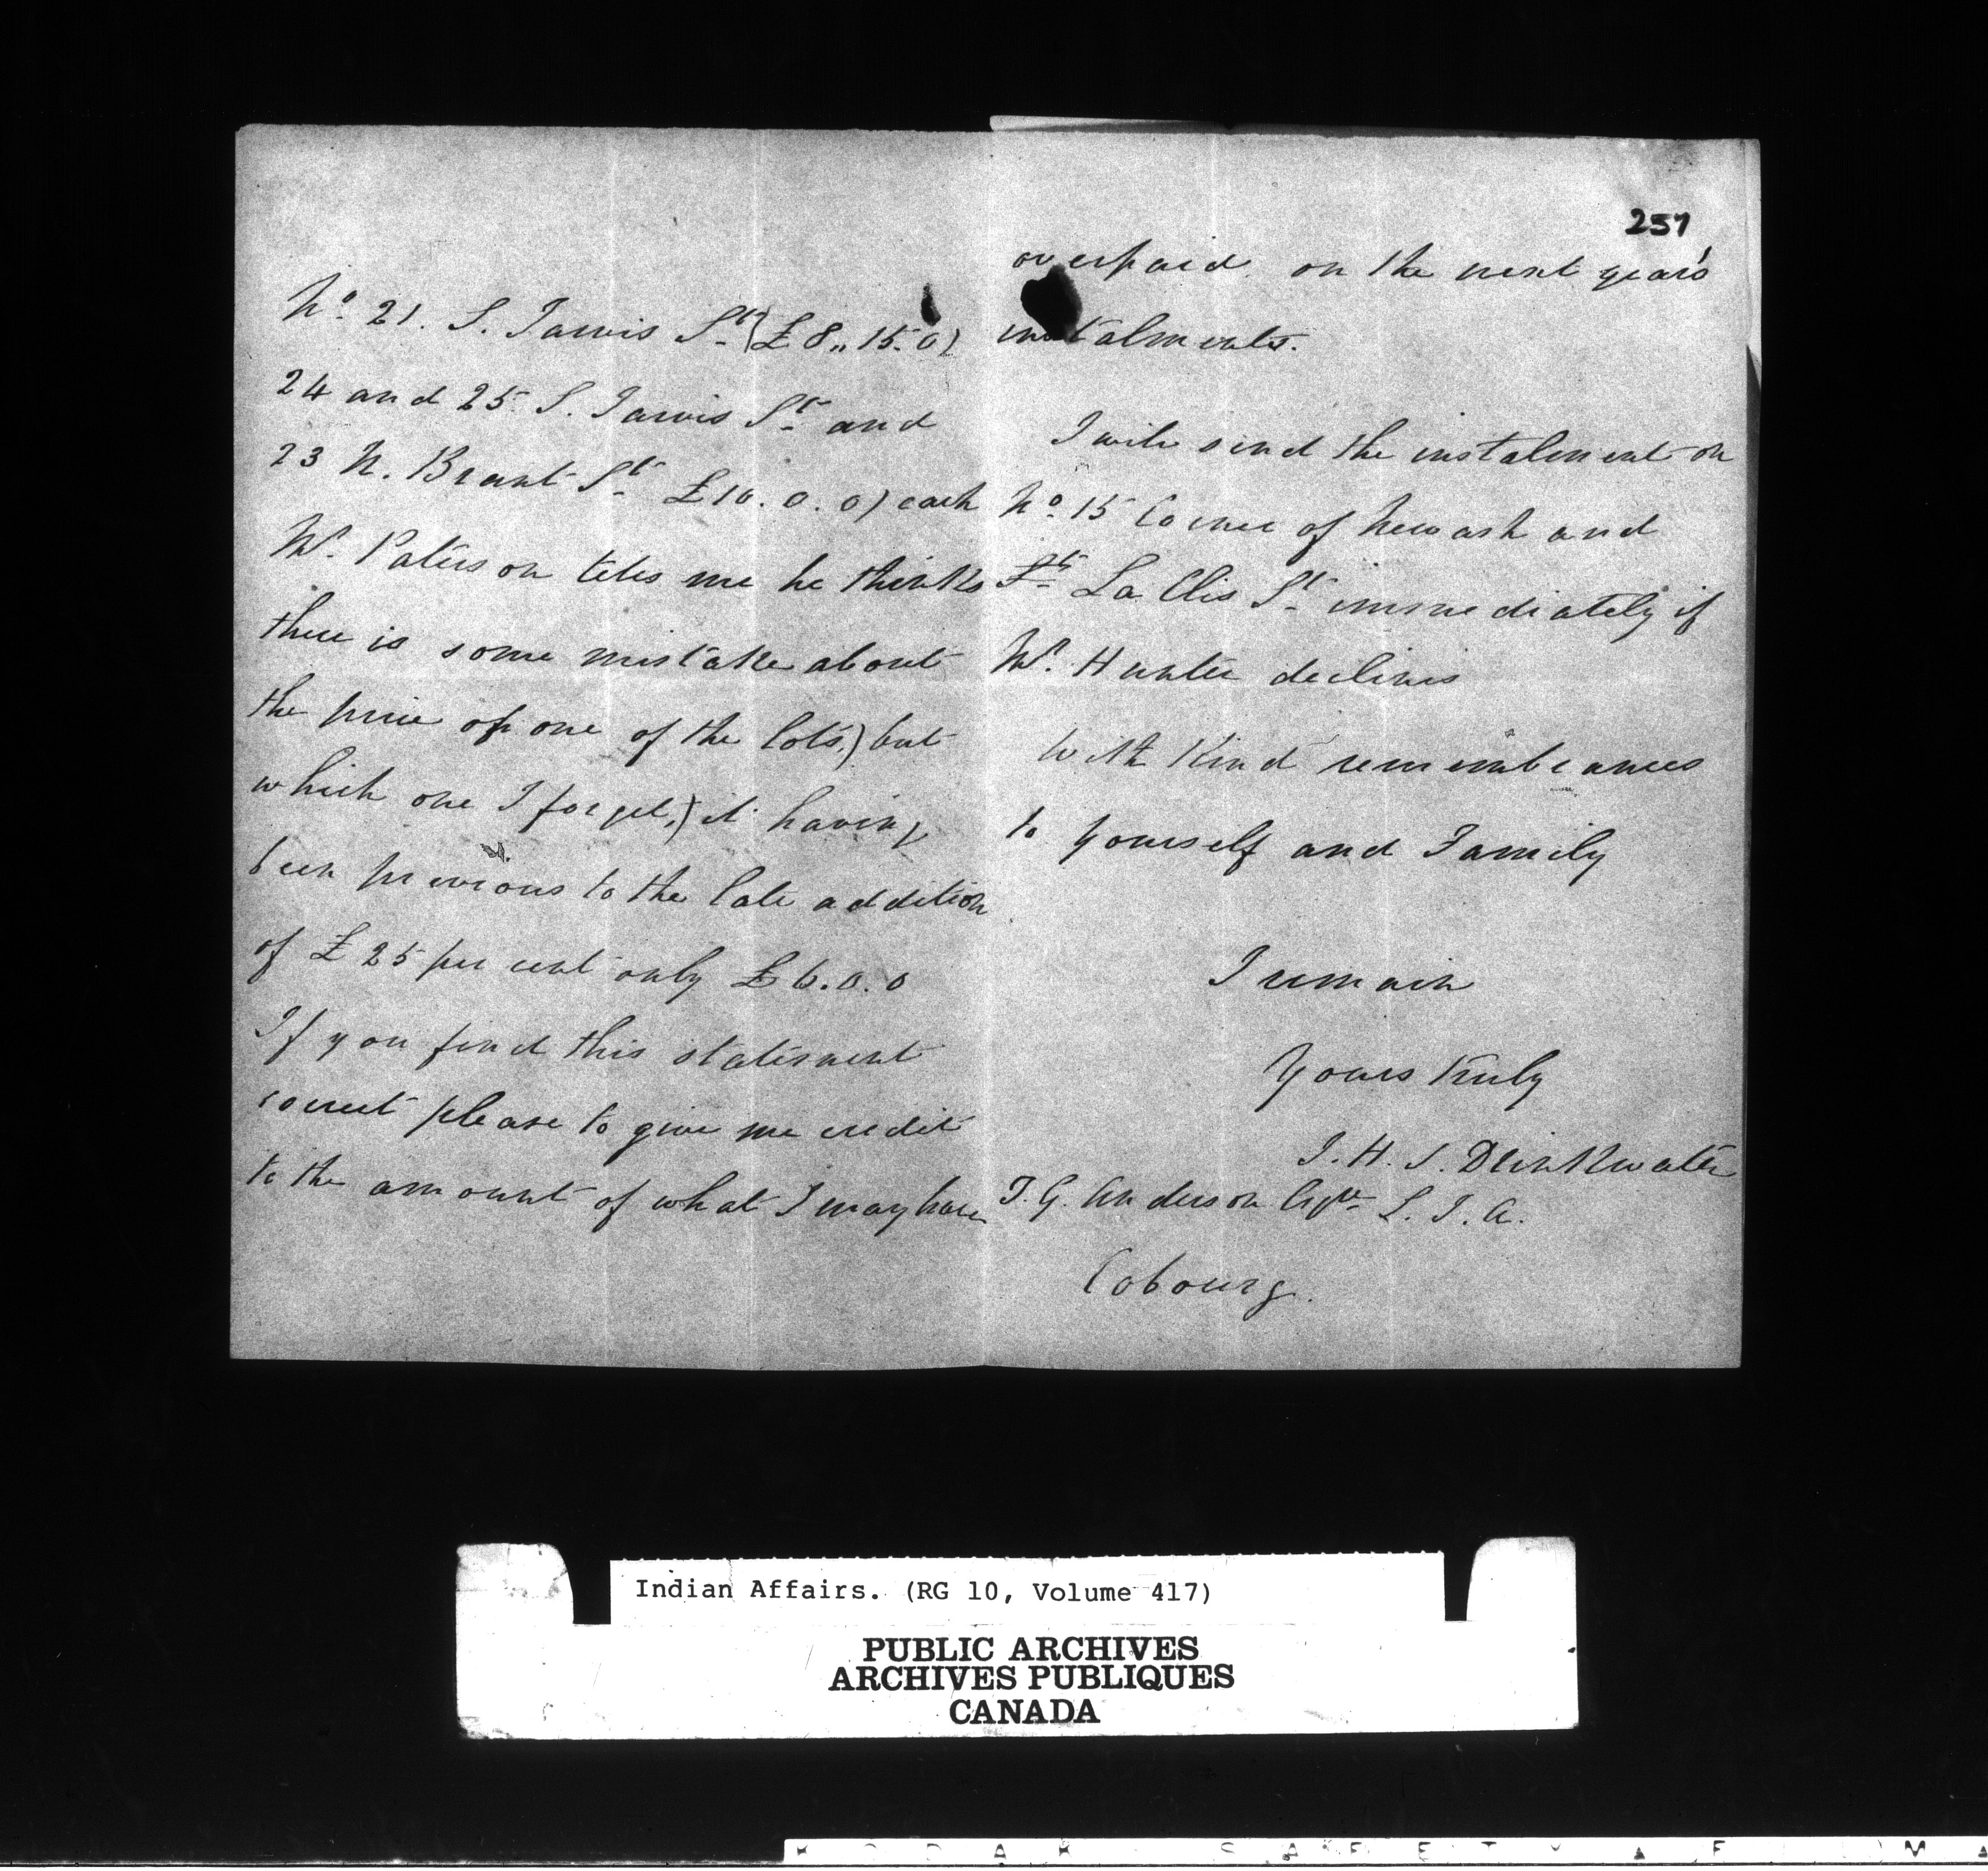 No. 21. S. Jarvis St (£8,, 15. 0)
24 and 25. S. Jarvis St and
23 N. Brant St £10. 0. 0) each
Mr. Paterson tells me he thinks
there is some mistake about
the price of one of the lots,) but
which one I forget,) it having
been previous to the late addition
of £25 per cent only £6. 0. 0
If you find this statement
correct please to give me credit
to the amount of what I may have
257
overpaid on the next year's
instalments.
I will send the instalment on
No. 15 Corner of Newash and
St. La Clis St immediately if
Mr. Hunter declines
With Kind remembrances
to yourself and Family
I remain
Yours truly
J. H. S. Drinkwater
T. G. Anderson Esqre S. I. A.
Cobourg.
Indian Affairs. (RG 10, Volume 417)
PUBLIC ARCHIVES
ARCHIVES PUBLIQUES
CANADA